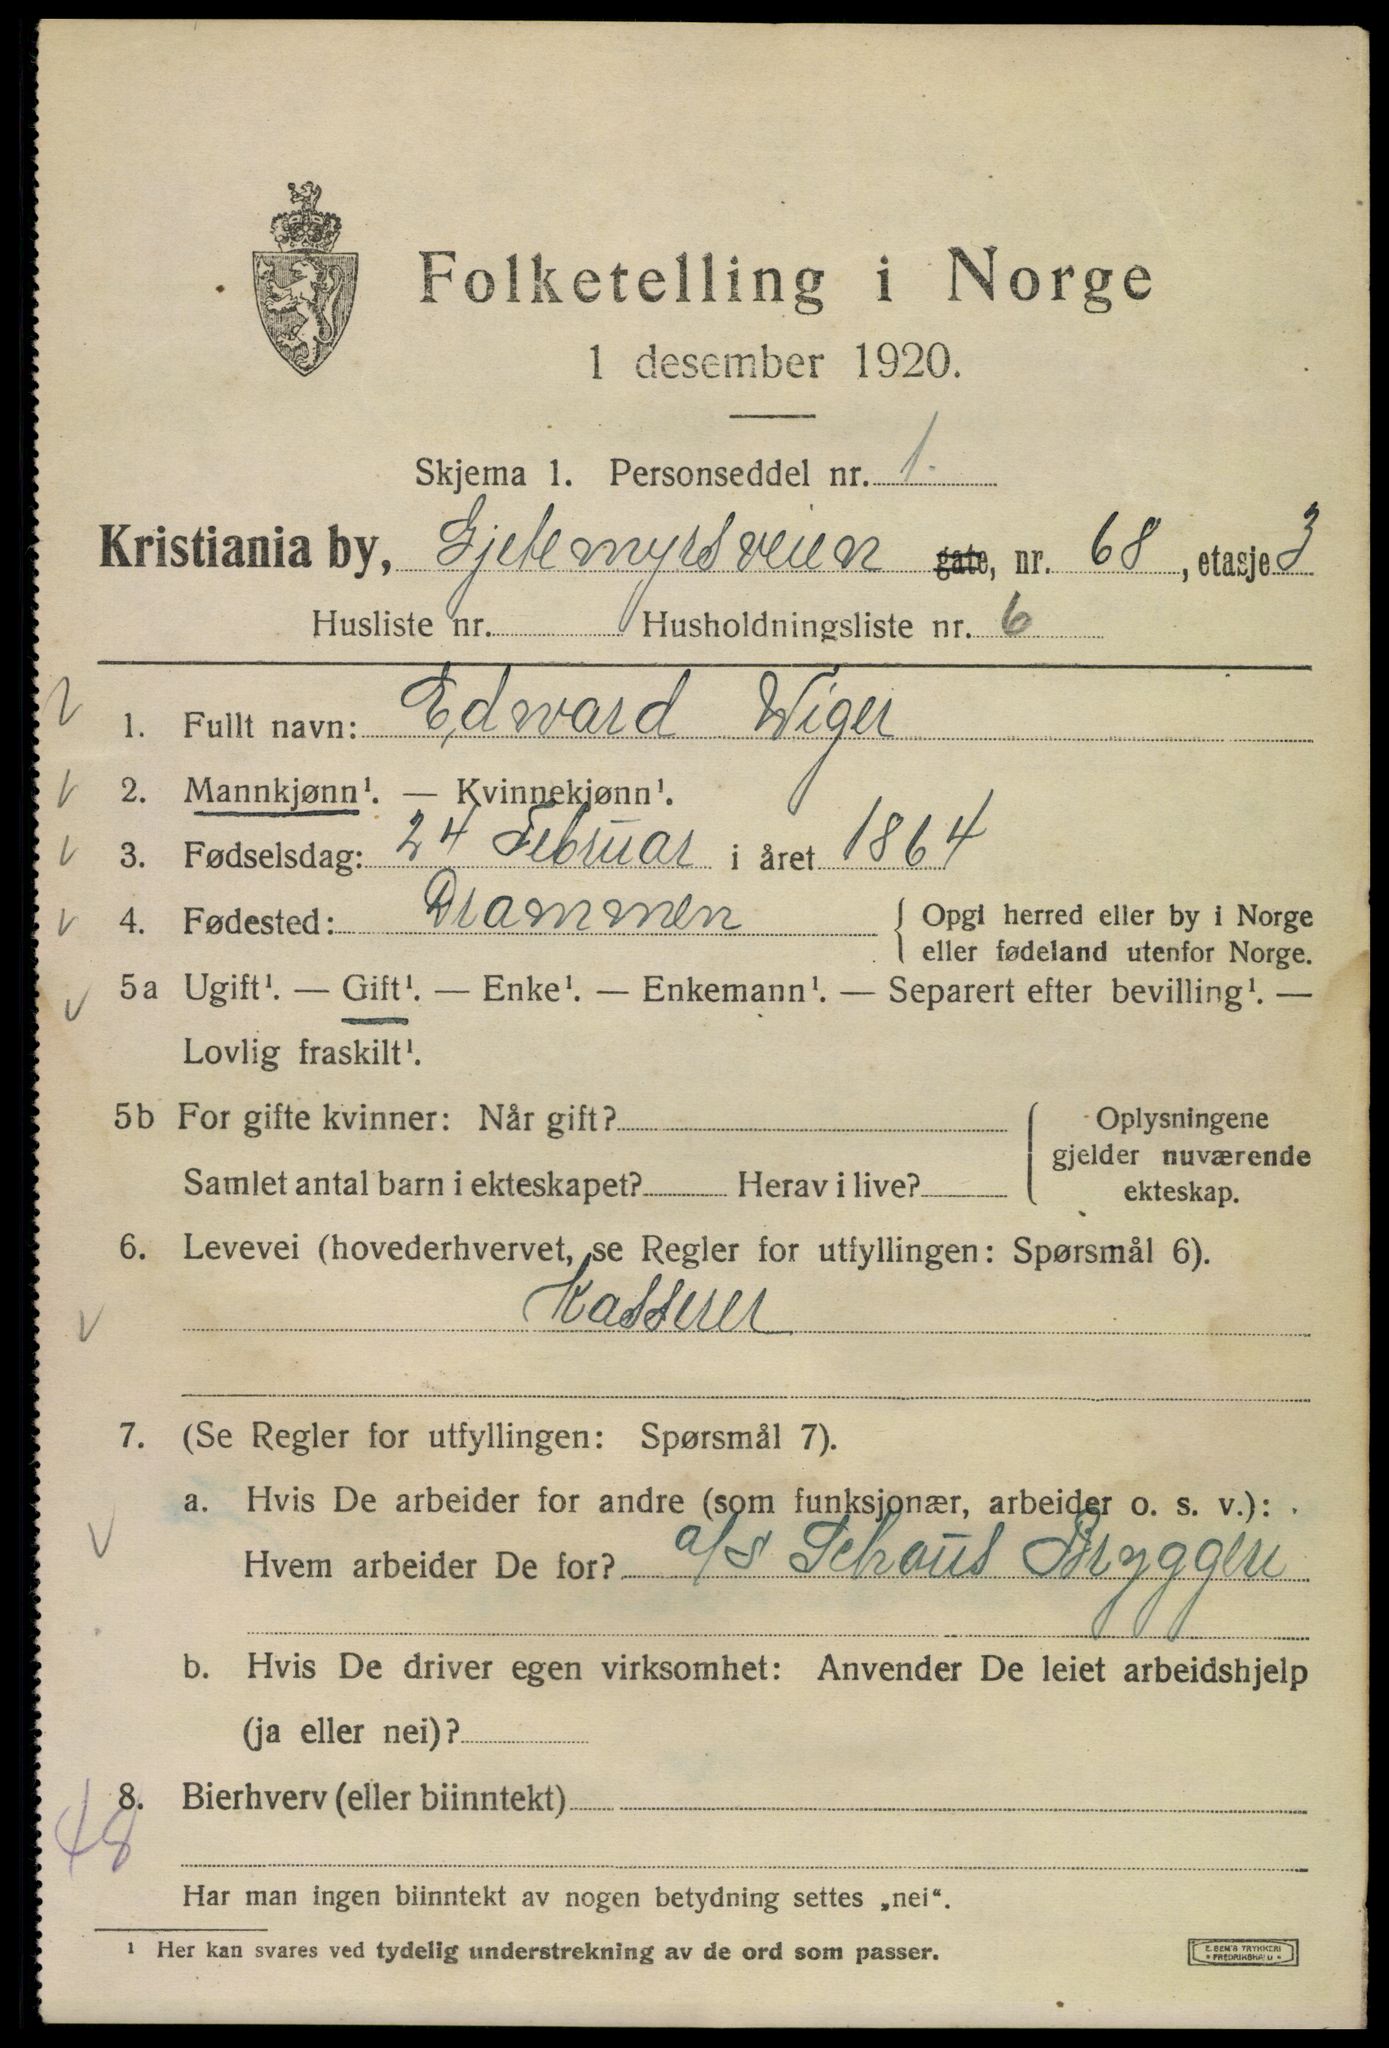 Folketelling i Norge
1 desember 1920.
Skjema 1. Personseddel nr. 1.
Kristiania by, Gjetemyrsveien gate, nr. 68, etasje 3
Husliste nr. Husholdningsliste nr. 6
1. Fullt navn: Edward Wiger
2. Mannkjønn¹. — Kvinnekjønn¹.
3. Fødselsdag: 24 Februar i året 1864
4. Fødested: Drammen { Opgi herred eller by i Norge
eller fødeland utenfor Norge.
5a Ugift¹. — Gift¹. — Enke¹. — Enkemann¹. — Separert efter bevilling¹. —
Lovlig fraskilt¹.
5b For gifte kvinner: Når gift? Oplysningene
gjelder nuværende
Samlet antal barn i ekteskapet? Herav i live? ekteskap.
6. Levevei (hovederhvervet, se Regler for utfyllingen: Spørsmål 6).
Kasserer
7. (Se Regler for utfyllingen: Spørsmål 7).
a. Hvis De arbeider for andre (som funksjonær, arbeider o. s. v.):
Hvem arbeider De for? a/s Schous Bryggeri
b. Hvis De driver egen virksomhet: Anvender De leiet arbeidshjelp
(ja eller nei)?
8. Bierhverv (eller biinntekt)
48
Har man ingen biinntekt av nogen betydning settes „nei“.
¹ Her kan svares ved tydelig understrekning av de ord som passer.
E. SEM'S TRYKKERI
FREDRIKSHALD